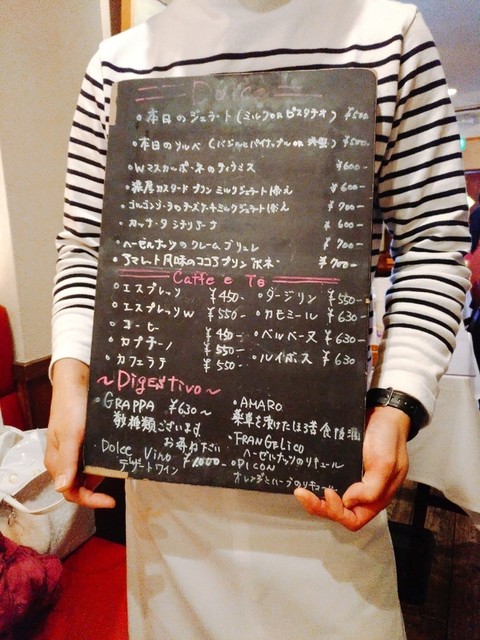 Dolce
•本日のジェラート(ミルク OR ピスタチオ) ¥500-
•本日のソルベ(バジルとパイナップル OR ) ¥500-
•Wマスカルポーネのティラミス ¥600-
•濃厚カスタードプリン ミルクジェラート添え ¥600-
•ゴルゴンゾーラのチーズケーキミルクジェラート添え ¥700-
•カッサータシチリアーナ ¥600-
•ヘーゼルナッツのクレームブリュレ ¥700-
•アマレット風味のココアプリン ボネ ¥700-
Caffe e Te
•エスプレッソ ¥450-
•エスプレッソW ¥550-
•コーヒー ¥450-
•カプチーノ ¥550-
•カフェラテ ¥550-
•ダージリン ¥550-
•カモミール ¥630-
•ベルベーヌ ¥630-
•ルイボス ¥630
~Digestivo~
•GRAPPA ¥630~
数種類ございます
お尋ね下さい
•Dolce Vino ¥1000-
デザートワイン
•AMARO
薬草を漬けたほろ苦食後酒
•FRANGELICO
ヘーゼルナッツのリキュール
•PICON
オレンジとハーブのリキュール